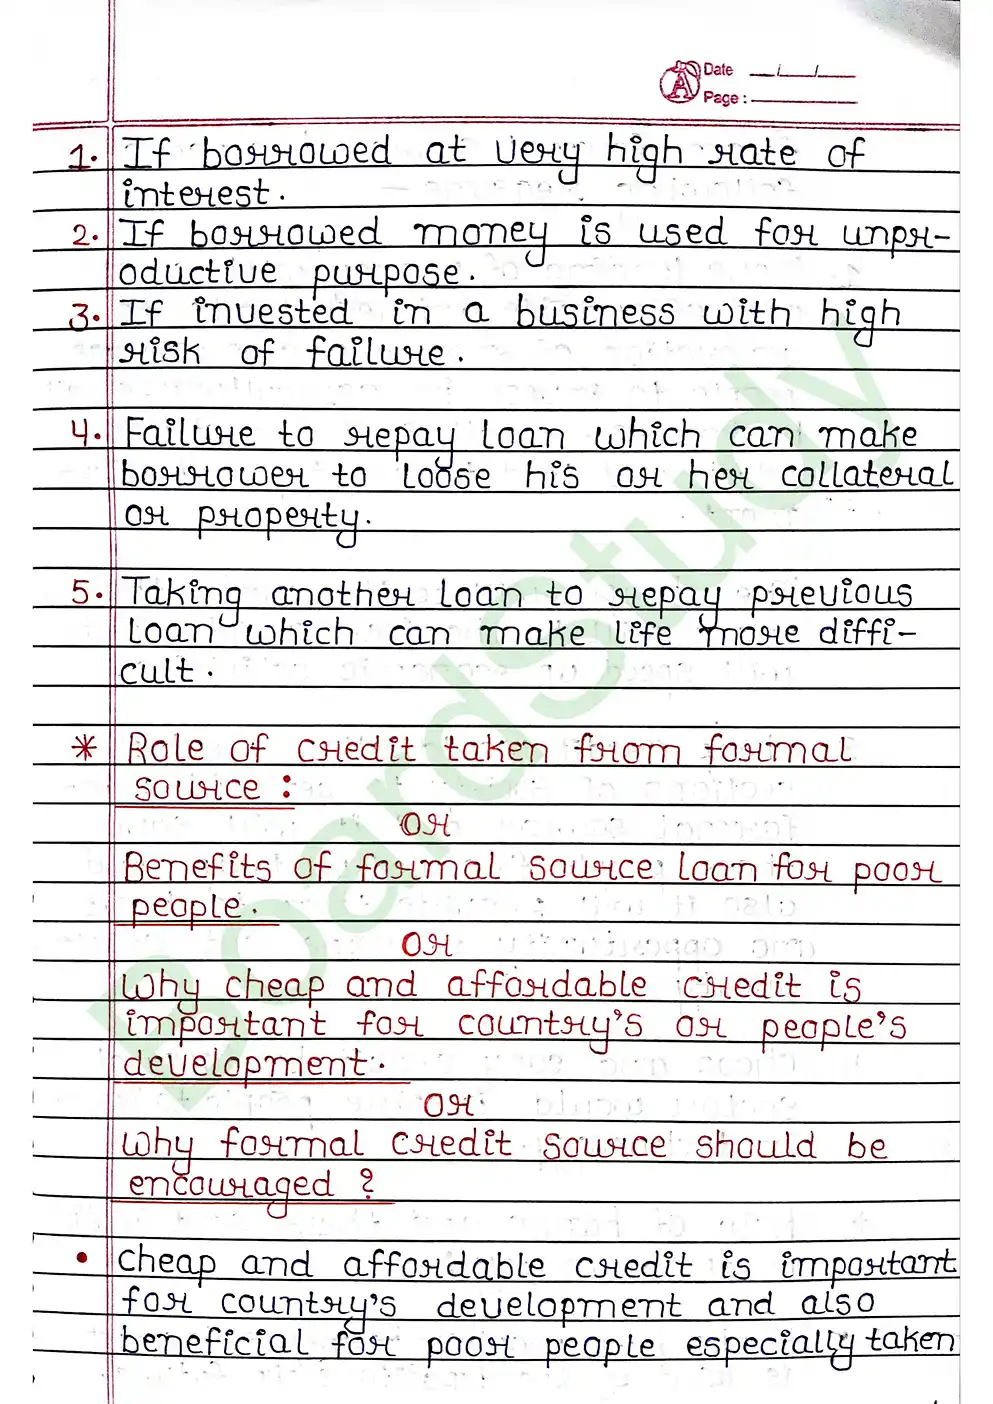 Date __/__/__
Page : ______
1. If borrowed at very high rate of
interest.
2. If borrowed money is used for unpr-
oductive purpose.
3. If invested in a business with high
risk of failure.
4. Failure to repay loan which can make
borrower to loose his or her collateral
or property.
5. Taking another loan to repay previous
loan which can make life more diffi-
cult.
* Role of credit taken from formal
source :
OR
Benefits of formal source loan for poor
people.
OR
Why cheap and affordable credit is
important for country's or people's
development.
OR
Why formal credit source should be
encouraged ?
• Cheap and affordable credit is important
for country's development and also
beneficial for poor people especially taken
BoardStudy